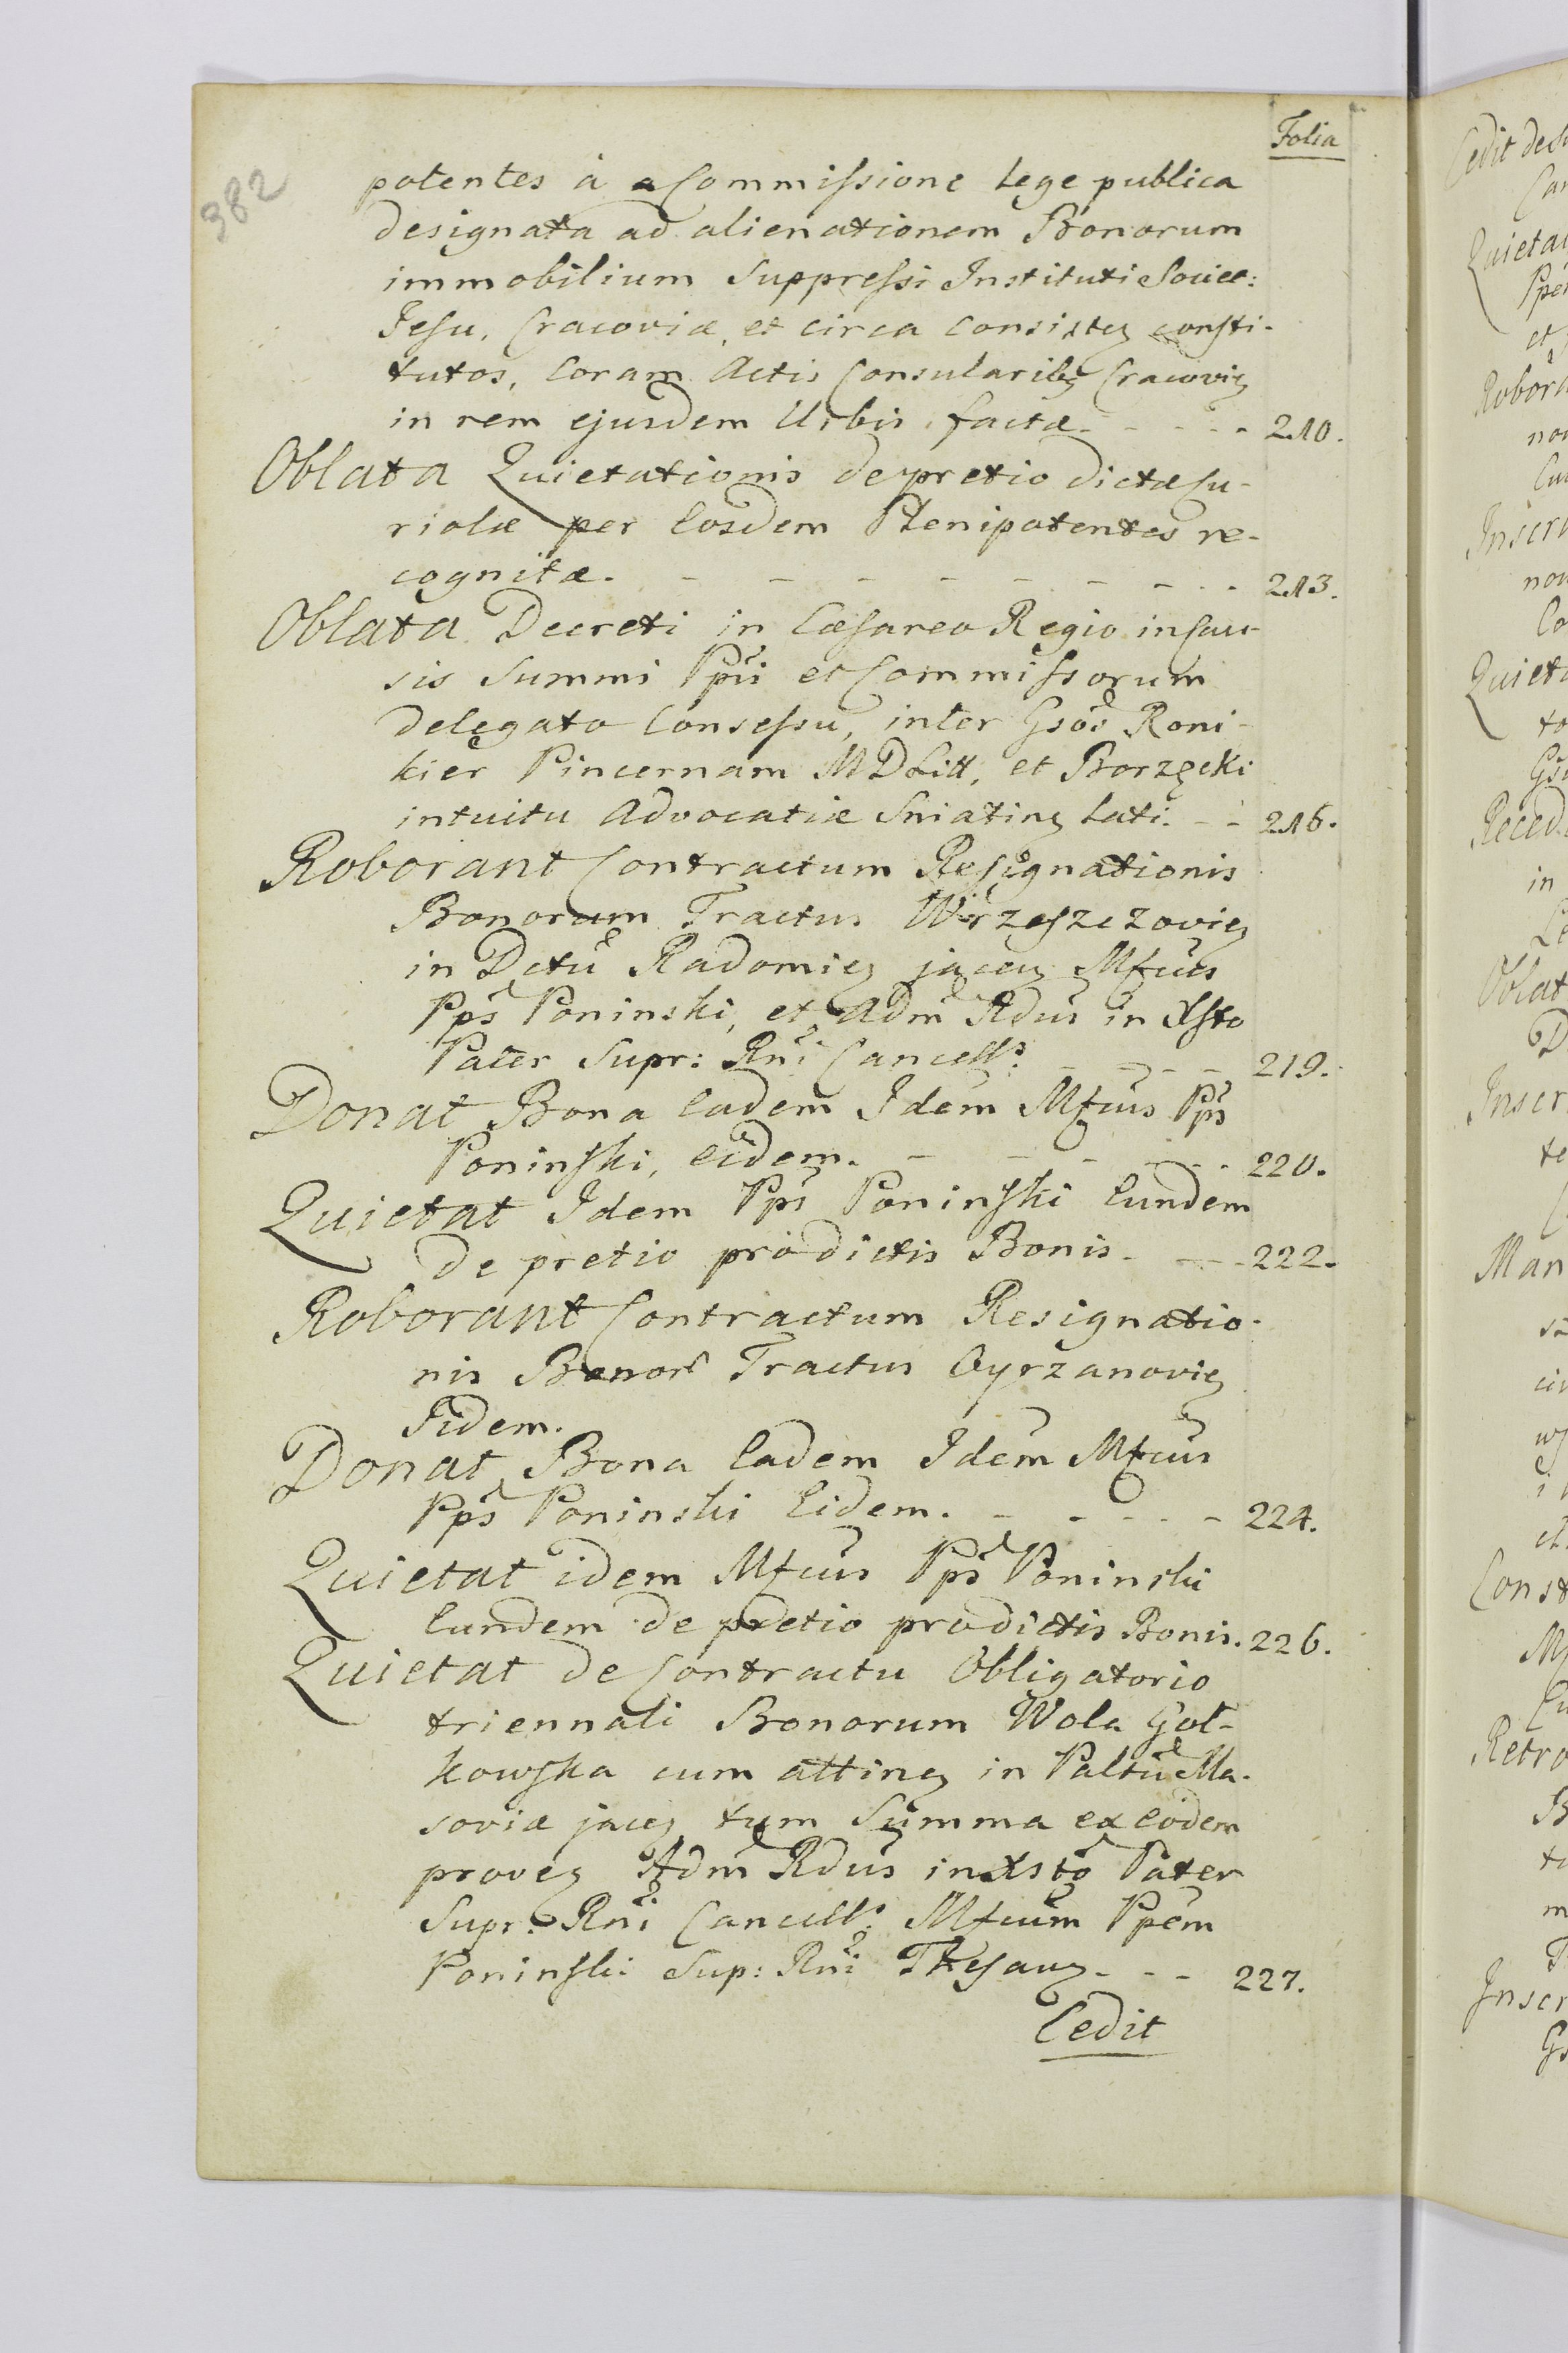 Folia
382
potentes à a Commissione Lege publica
designata ad alienationem Bonorum
immobilium Suppressi Instituti Societ:
Jesu, Cracoviæ, et circa Consisteȝ consti-
tutos, Coram Actis Consularibȝ Cracovieȝ
in rem ejusdem Urbis factæ. - - - - 210.
Oblata Quietationis de pretio dictæ Cu-
riolæ per Eosdem Plenipotentes re-
cognitæ. - - - - - - - - - 213.
Oblata Decreti in Cæsareo Regio in Cau-
sis Summi Ppii et Commissorum
delegato Consessu, inter Gsos Roni-
kier Pincernam MDLitt, et Borzęcki
intuitu Advocatiæ Sniatineȝ Lati. - - 216.
Roborant Contractum Resignationis
Bonorum Tractus Wrzeszczovieȝ
in Dctu Radomieȝ jaceȝ Mfcus
Pps Poninski, et Adm Rdus in Xsto
Pater Supr: Rni Cancells - - - - 219.
Donat Bona Eadem Idem Mfcus Pps
Poninski, Eidem. - - - - - 220.
Quietat Idem Pps Poninski Eundem
de pretio prodictis Bonis - - - 222.
Roborant Contractum Resignatio-
nis Bonor Tractus Oyrzanovieȝ
Iidem.
Donat Bona Eadem Idem Mfcus
Pps Poninski Eidem. - - - - - 224.
Quietat idem Mfcus Pps Poninski
Eundem de pretio prodictis Bonis. 226.
Quietat de Contractu Obligatorio
triennali Bonorum Wola Goł-
kowska cum attineȝ in Paltu Ma-
soviæ jaceȝ tum Summa ex Eodem
proveȝ Adm Rdus in Xsto Pater
Supr: Rni Cancells Mfcum Ppem
Poninski Sup: Rni Thesauȝ - - - 227.
Cedit